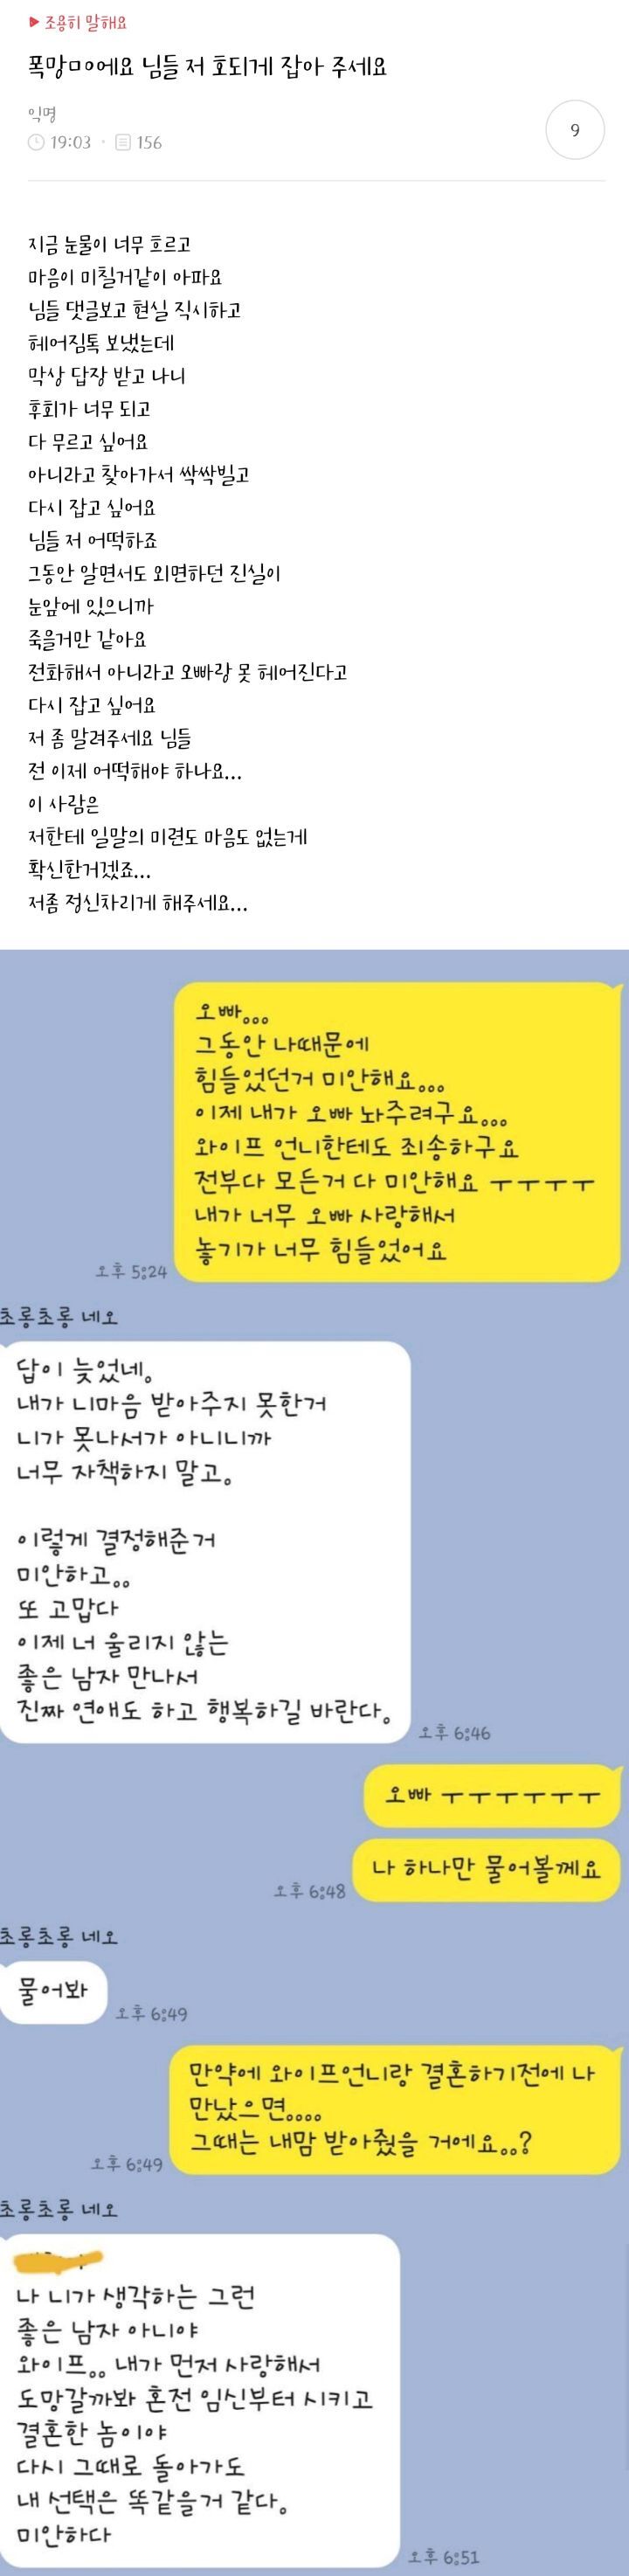 ▶ 조용히 말해요
폭망ㅁㅇ에요 님들 저 호되게 잡아 주세요
익명
19:03 · 156
9
지금 눈물이 너무 흐르고
마음이 미칠거같이 아파요
님들 댓글보고 현실 직시하고
헤어짐톡 보냈는데
막상 답장 받고 나니
후회가 너무 되고
다 무르고 싶어요
아니라고 찾아가서 싹싹빌고
다시 잡고 싶어요
님들 저 어떡하죠
그동안 알면서도 외면하던 진실이
눈앞에 있으니까
죽을거만 같아요
전화해서 아니라고 오빠랑 못 헤어진다고
다시 잡고 싶어요
저 좀 말려주세요 님들
전 이제 어떡해야 하나요...
이 사람은
저한테 일말의 미련도 마음도 없는게
확신한거겠죠...
저좀 정신차리게 해주세요...
오빠...
그동안 나때문에
힘들었던거 미안해요...
이제 내가 오빠 놔주려구요...
와이프 언니한테도 죄송하구요
전부다 모든거 다 미안해요 ㅜㅜㅜㅜ
내가 너무 오빠 사랑해서
놓기가 너무 힘들었어요
오후 5:24
초롱초롱 네오
답이 늦었네.
내가 니마음 받아주지 못한거
니가 못나서가 아니니까
너무 자책하지 말고.
이렇게 결정해준거
미안하고..
또 고맙다
이제 너 울리지 않는
좋은 남자 만나서
진짜 연애도 하고 행복하길 바란다.
오후 6:46
오빠 ㅜㅜㅜㅜㅜㅜ
나 하나만 물어볼께요
오후 6:48
초롱초롱 네오
물어봐
오후 6:49
만약에 와이프언니랑 결혼하기전에 나
만났으면....
그때는 내맘 받아줬을 거에요..?
오후 6:49
초롱초롱 네오
나 니가 생각하는 그런
좋은 남자 아니야
와이프.. 내가 먼저 사랑해서
도망갈까봐 혼전 임신부터 시키고
결혼한 놈이야
다시 그때로 돌아가도
내 선택은 똑같을거 같다.
미안하다
오후 6:51